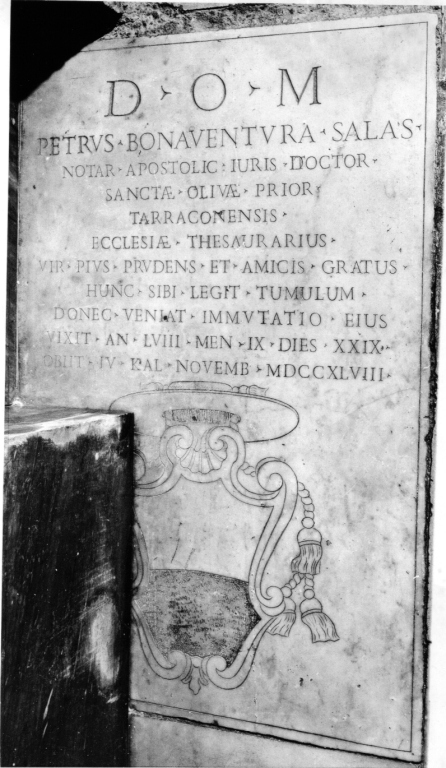 D · O · M
PETRVS · BONAVENTVRA · SALAS ·
NOTAR · APOSTOLIC : IURIS · DOCTOR ·
SANCTÆ · OLIVÆ · PRIOR ·
TARRACONENSIS ·
ECCLESIÆ · THESAURARIUS ·
VIR · PIVS · PRVDENS · ET · AMICIS · GRATUS ·
HUNC · SIBI · LEGIT · TUMULUM ·
DONEC · VENIAT · IMMVTATIO · EIUS
VIXIT · AN · LVIII · MEN · IX · DIES · XXIX ·
OBIIT · IV · KAL · NOVEMB · MDCCXLVIII ·